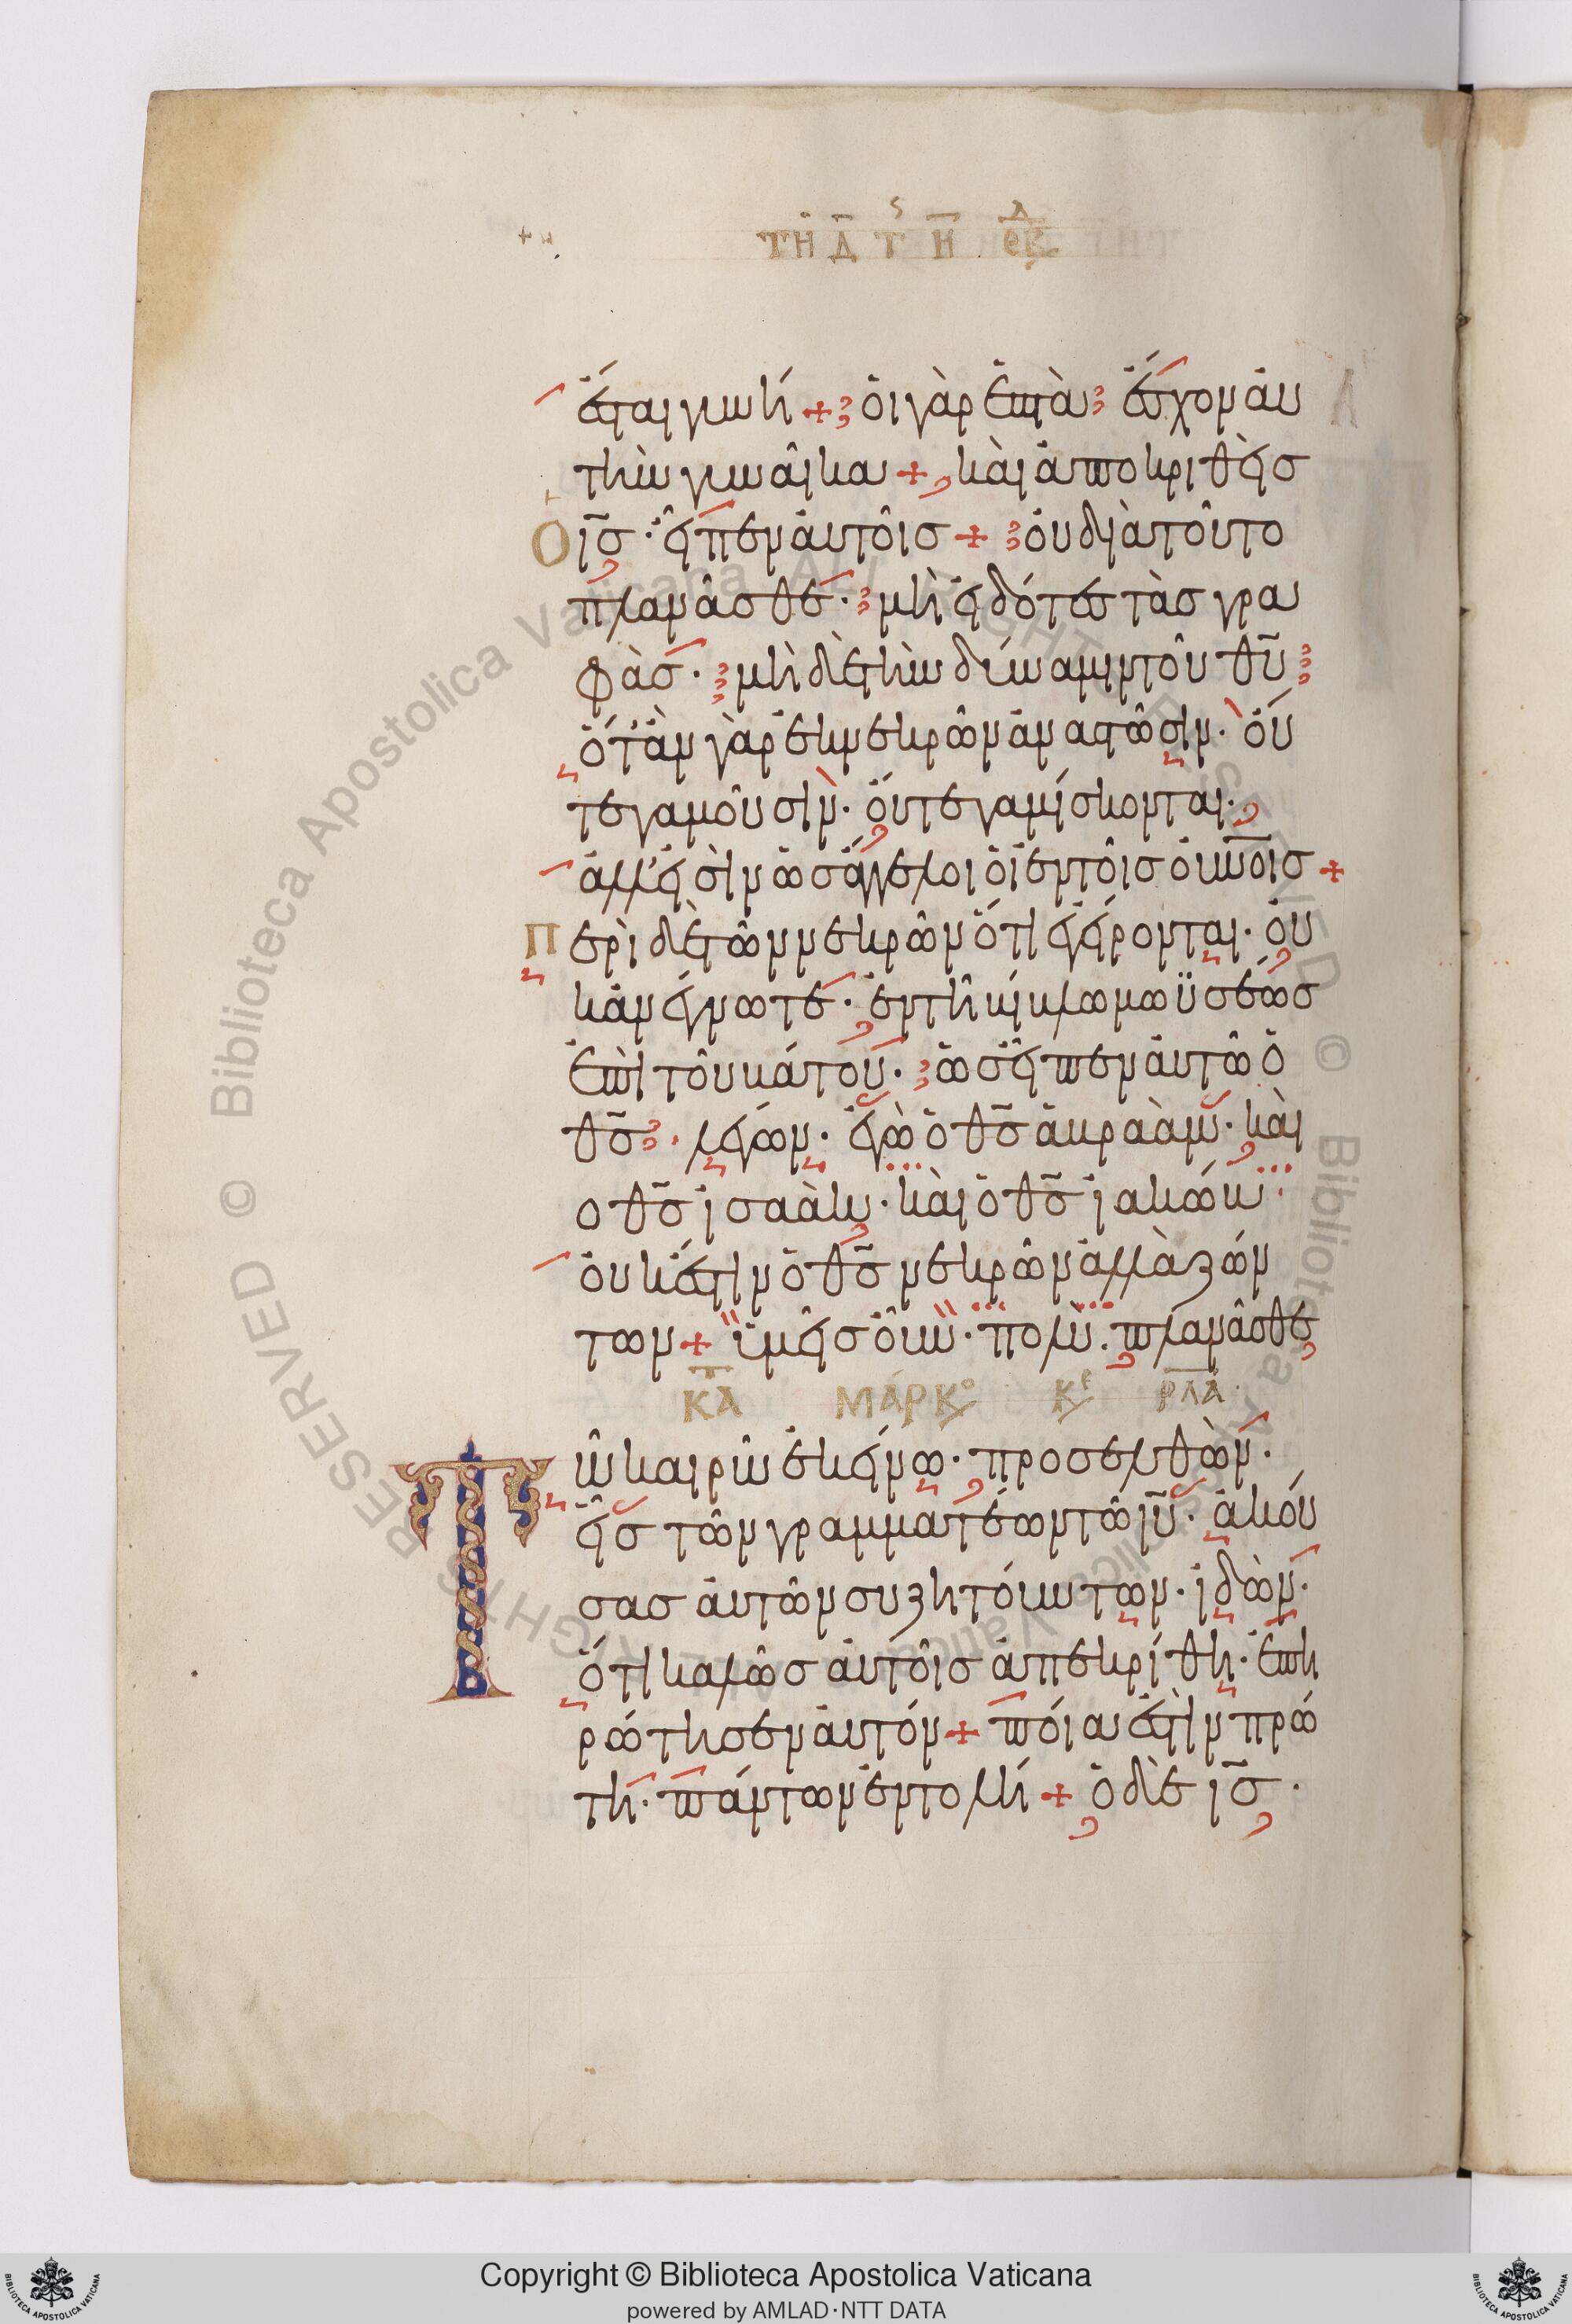 τῆ δ τ ς η εβδ
ἔσται γυνή + οἱ γὰρ ἑπτὰ ἔσχον ἀυ
τὴν γυναῖκα + καὶ ἀποκριθεὶσ
Ὁ ι̅σ̅ · εἶπεν ἀυτοῖσ + ὀυ διὰ τοῦτο
πλανᾶσθε · μὴ εἰδότεσ τὰσ γρα
φάσ · μὴ δὲ τὴν δύναμιν τοῦ θ̅υ̅
ὅταν γὰρ ἐκ νεκρῶν ἀναστῶσιν · ὄυ
τε γαμοῦσιν · ὄυτε γαμίσκονται ·
ἀλλ' εἰσὶν ὡσ ἄγγελοι ὁι ἐν τοῖσ ὀυ̅ν̅οισ +
Περὶ δὲ τῶν νεκρῶν ὅτι ἐγείρονται · ὀυ
κ ἀνέγνωτε · ἐν τῆ βίβλω μωϋσέωσ
ἐπὶ τοῦ βάτου · ὡσ εἶπεν ἀυτῶ ὁ
θ̅σ̅ · λέγων · ἐγὼ ὁ θ̅σ̅ ἀβραὰμ · καὶ
ο θ̅σ̅ ἰσαὰκ · καὶ ὁ θ̅σ̅ ἰακώβ
ὀυκ ἔστιν ὁ θ̅σ̅ νεκρῶν ἀλλὰ ζών
των + ὑμεῖσ οὖν · πολὺ · πλανᾶσθε
ΚΔ ΜΑΡΚο Κε ΡΛΑ
Τῶ καιρῶ ἐκείνω · προσελθὼν ·
εἷσ τῶν γραμματέων τῶ ι̅υ̅ · ἀκού
σασ ἀυτῶν συζητούντων · ἰδὼν ·
ὅτι καλῶσ ἀυτοῖσ ἀπεκρίθη · ἐπη
ρώτησεν ἀυτόν + ποία ἐστὶν πρώ
τη · πάντων ἐντολή + ὁ δὲ ι̅σ̅ ·
Copyright © Biblioteca Apostolica Vaticana
powered by AMLAD·NTT DATA
© Biblioteca Apostolica Vaticana ALL RIGHTS RESERVED © Biblioteca Apostolica Vaticana ALL RIGHTS RESERVED